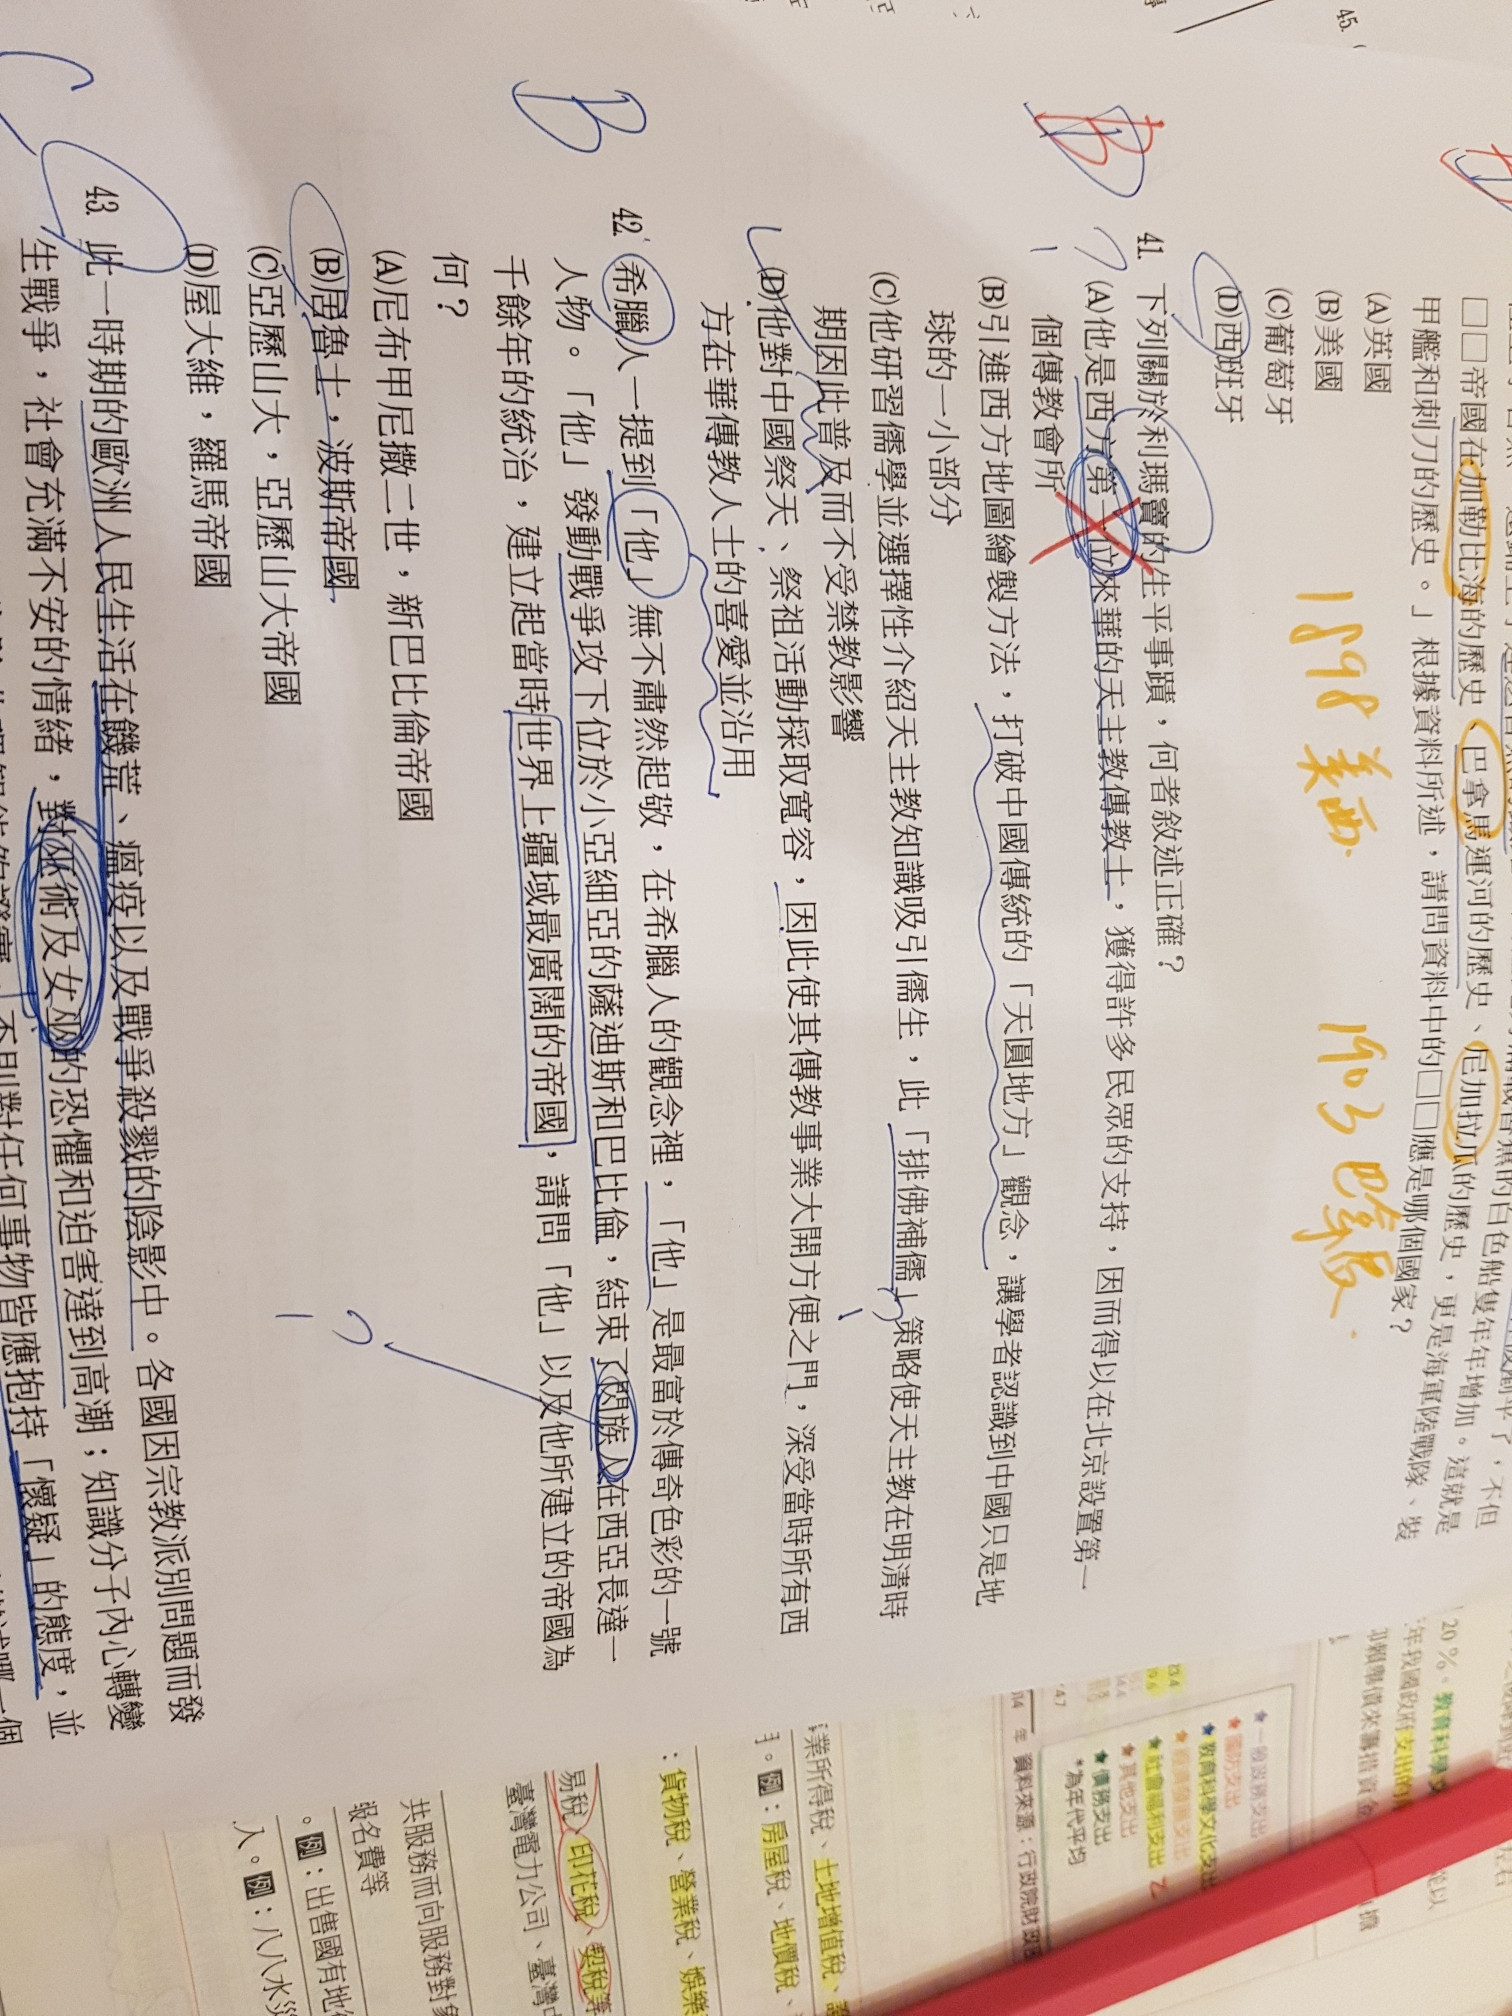 45.
□□帝國在加勒比海的歷史、巴拿馬運河的歷史、尼加拉瓜的歷史，更是海軍陸戰隊、裝
甲艦和刺刀的歷史。」根據資料所述，請問資料中的□□應是哪個國家？
(A)英國
(B)美國
(C)葡萄牙
(D)西班牙
1898 美西.
1903 巴拿馬.
B
41. 下列關於利瑪竇的生平事蹟，何者敘述正確？
(A)他是西方第一位來華的天主教傳教士，獲得許多民眾的支持，因而得以在北京設置第一
個傳教會所
(B)引進西方地圖繪製方法，打破中國傳統的「天圓地方」觀念，讓學者認識到中國只是地
球的一小部分
(C)他研習儒學並選擇性介紹天主教知識吸引儒生，此「排佛補儒」策略使天主教在明清時
期因此普及而不受禁教影響
(D)他對中國祭天、祭祖活動採取寬容，因此使其傳教事業大開方便之門，深受當時所有西
方在華傳教人士的喜愛並沿用
B
42. 希臘人一提到「他」無不肅然起敬，在希臘人的觀念裡，「他」是最富於傳奇色彩的一號
人物。「他」發動戰爭攻下位於小亞細亞的薩迪斯和巴比倫，結束了閃族人在西亞長達一
千餘年的統治，建立起當時世界上疆域最廣闊的帝國，請問「他」以及他所建立的帝國為
何？
(A)尼布甲尼撒二世，新巴比倫帝國
(B)居魯士，波斯帝國
(C)亞歷山大，亞歷山大帝國
(D)屋大維，羅馬帝國
C
43. 此一時期的歐洲人民生活在饑荒、瘟疫以及戰爭殺戮的陰影中。各國因宗教派別問題而發
生戰爭，社會充滿不安的情緒，對巫術及女巫的恐懼和迫害達到高潮；知識分子內心轉變
不則對任何事物皆應抱持「懷疑」的態度，並
20%。教育科學文
年我國政府支出的
一般政務支出
國防支出
教育科學文化支出
經濟發展支出
社會福利支出
其他支出
債務支出
*為年代平均
年 資料來源：行政院財政部
業所得稅、土地增值稅、
。例：房屋稅、地價稅、
：貨物稅、營業稅、娛樂
易稅、印花稅、契稅等
臺灣電力公司、臺灣
共服務而向服務對象
報名費等
。例：出售國有地
人。例：八八水災